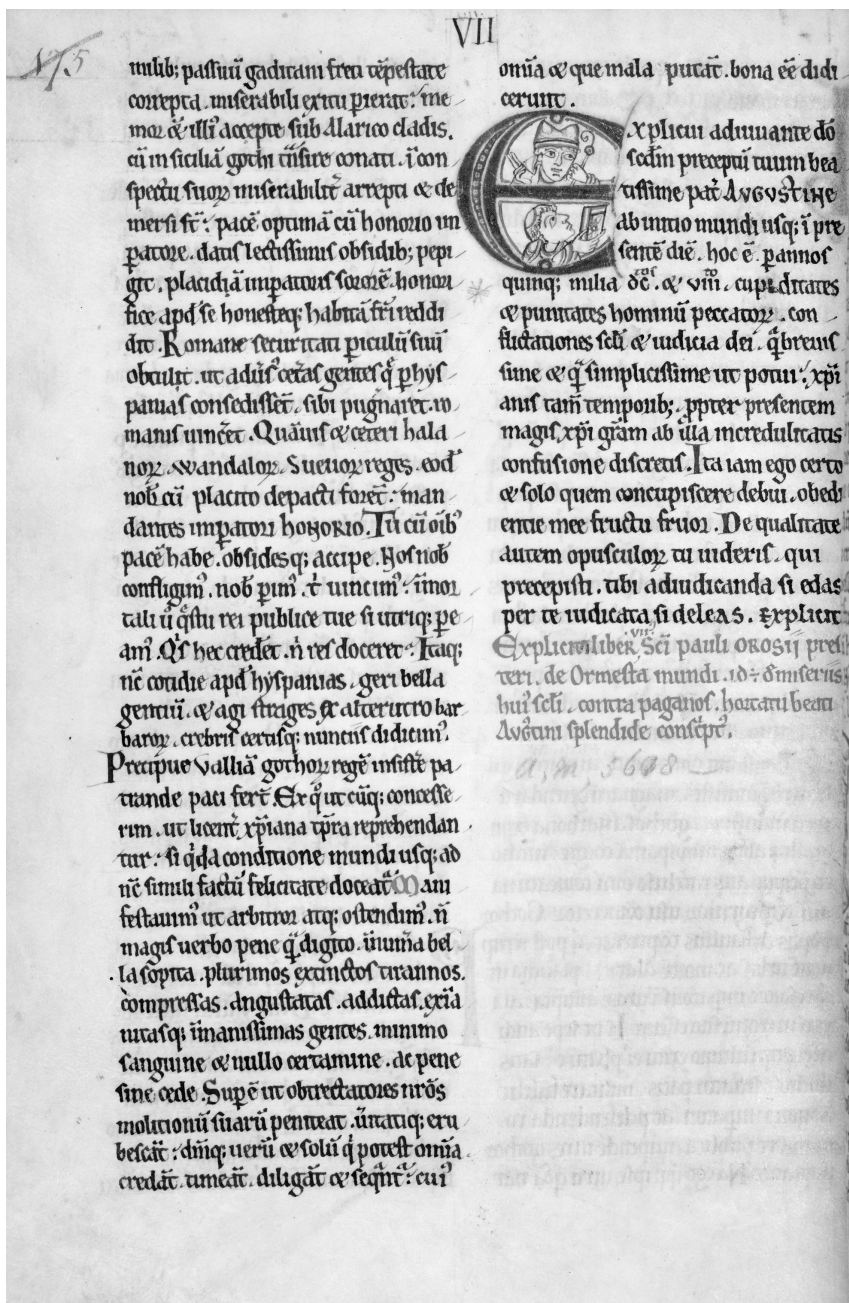 VII
milib; passuū gaditani freti tēpestate
correpta . miserabili exitu pierat : me
mor & illi᾽ accepte sub Alarico cladis .
cū in siciliā gothi t̄nsire conati . ī con
spectu suoꝝ miserabilit̄ arrepti & de
mersi st̄ : pacē optimā cū honorio im
ꝑatore . datis lectissimis obsidib; pepi
git . placidiā imꝑatoris sororē . honori
fice apđ se honesteq; habitā fr̄i reddi
dit . Romane securitati ꝑiculū suū
obtulit . ut adus᾽ cet̄as gentes q̄ ꝑ hys
panias consedissēt . sibi pugnaret . ro
manis uincēt . Quāuis & ceteri hala
noꝝ . wandaloꝝ . Sueuoꝝ reges . eođ
nob̄ cū placito depacti forēt : man
dantes imꝑatori hoNoRio . Tu cū oīb᾽
pacē habe . obsidesq; accipe . Nos nob̄
confligim᾽ . nob̄ ꝑim᾽ . t̄ uincim᾽ : īmor
tali ū q̄stu rei publice tue si utriq; pe
am᾽ . Qͥs hec credēt . n̄ res doceret : Itaq;
nc̄ cotidie apđ hyspanias . geri bella
gentiū . & agi strages ex alterutro bar
baroꝝ . crebris certisq; nuntiis didicim᾽ .
Precipue Valliā gothoꝝ regē insistē pa
trande paci fert̄ . Ex qͦ ut cūq; concesse
rim . ut licent̄ . xp̄iana tp̄ra reprehendan
tur : si qͥd a conditione mundi usq; ad
nc̄ simili factū felicitate doceat̄ Mani
festauim᾽ ut arbitror atq; ostendim᾽ . n̄
magis uerbo pene q̄ digito . īnum̄a bel
la sopita . plurimos extinctos tirannos .
compressas . angustatas . addictas . exīa
nitasq; īmanissimas gentes . minimo
sanguine & nullo certamine . ac pene
sine cede . Suꝑē ut obtrectatores nr̄os
molitionū suarū peniteat . ūitatiq; eru
bescāt : dm̄q; uerū & solū qͥ potest om̄ia
credāt . timeāt . diligāt & seq̄nt̄ : cui᾽
om̄ia & que mala putāt . bona eē didi
cerunt .
Explicui adiuuante dō
scđm preceptū tuum bea
tissime pat̄ AVGVSTINE
ab initio mundi usq; ī pre
sentē diē . hoc ē . ꝑ annos
quinq; milia dc̄ᵒˢ . & viiiᵗᵒ . cupiditates
& punitates hominū peccatoꝝ . con
flictationes scl̄i & iudicia dei . q̄ breuis
sime & q̄ simplicissime ut potui : xp̄i
anis tam̄ temporib; . ꝓpter presentem
magis xp̄i gr̄am ab illa incredulitatis
confusione discretis . Ita iam ego certo
& solo quem concupiscere debui . obedi
entie mee fructu fruor . De qualitate
autem opusculoꝝ tu uideris . qui
precepisti . tibi adiudicanda si edas
per te iudicata si deleas . Explicit
Explicit liber vii Sc̄i pauli OROSII pres
teri . de Ormesta mundi . id÷ đ miseriis
hui᾽ scl̄i . contra paganos . hortatu beati
Avḡtini splendide conscript᾽ .
a.m 5618